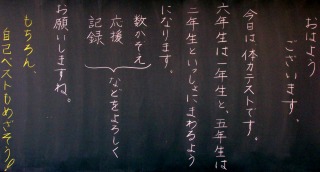 おはよう
ございます。
今日は体力テストです。
六年生は一年生と、五年生は
二年生といっしょにまわるよう
になります。
数かぞえ
応援
記録
などをよろしく
お願いしますね。
もちろん、
自己ベストもめざそう!